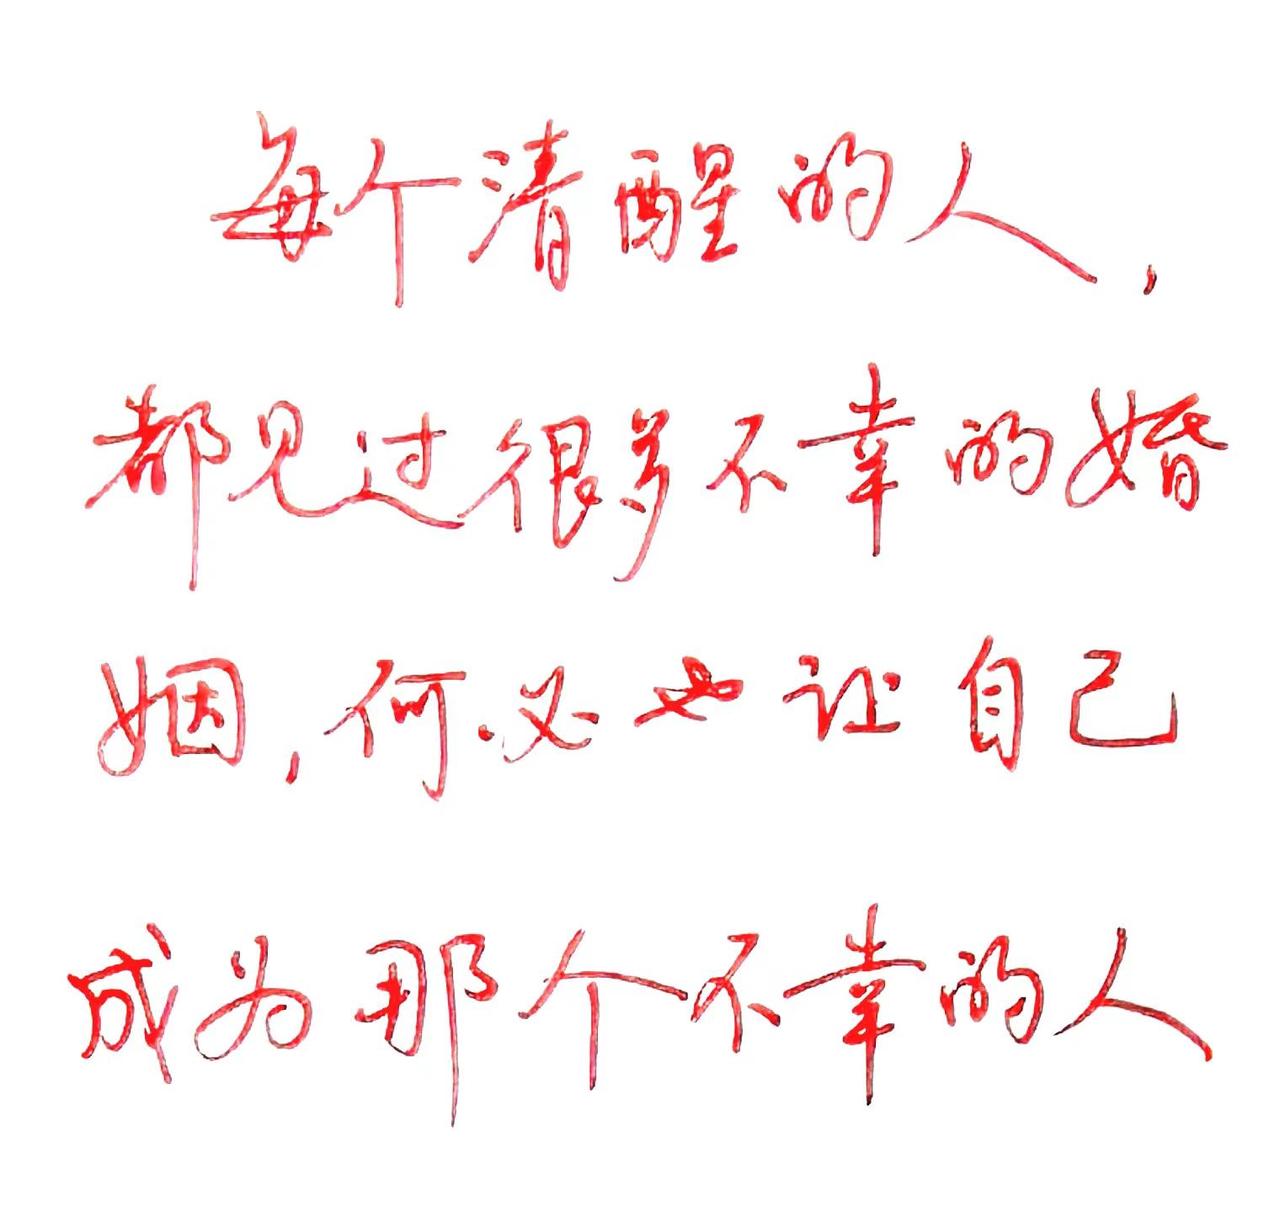 每个清醒的人，
都见过很多不幸的婚
姻，何必也让自己
成为那个不幸的人